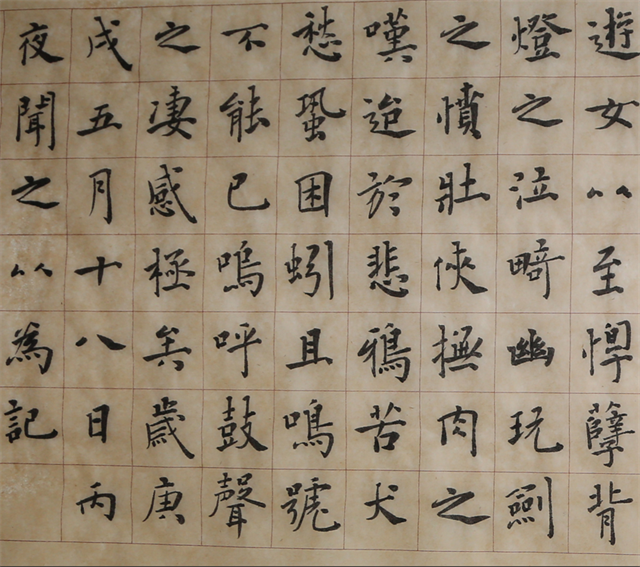 遊女以至惸孽背
燈之泣畸幽玩劍
之憤壯俠撫肉之
嘆迨於悲鴉苦犬
愁蛩困蚓且鳴號
不能已嗚呼鼓聲
之凄感極矣歲庚
戌五月十八日丙
夜聞之以為記